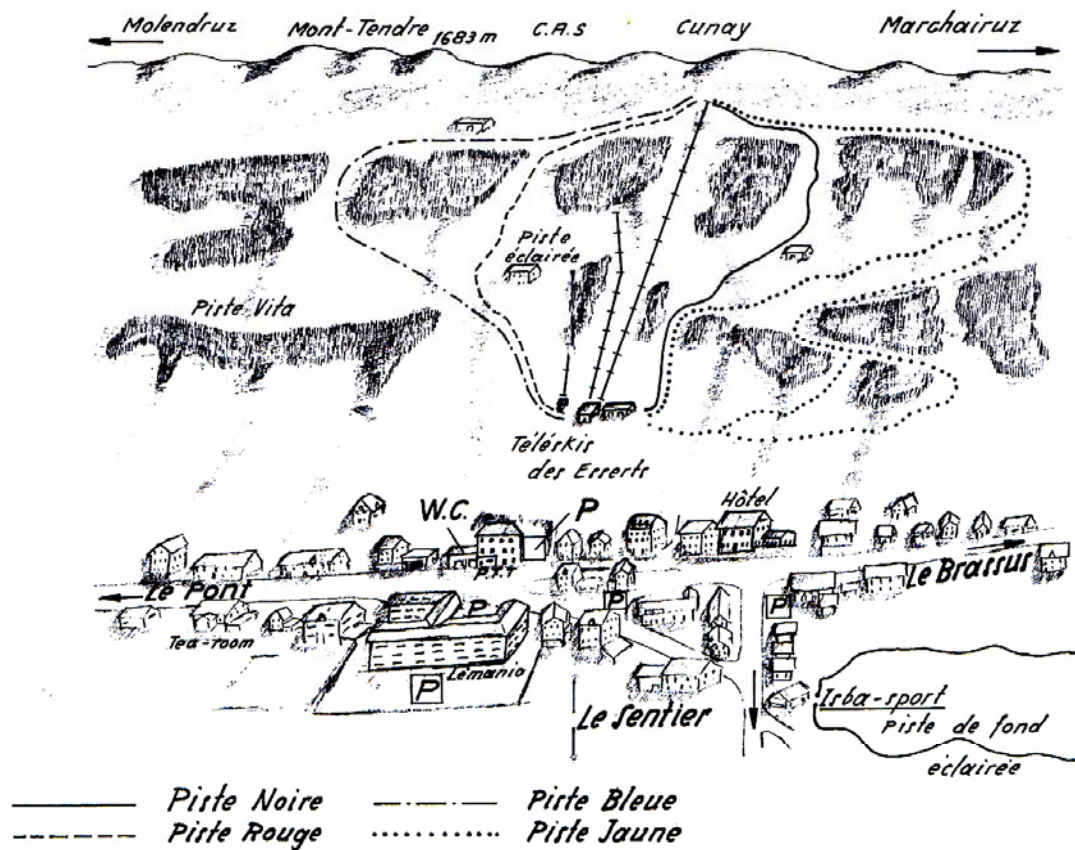 Molendruz
Mont-Tendre 1683 m
C.A.S
Cunay
Marchairuz
Piste
éclairée
Piste Vita
Téléskis
des Esserts
W.C.
P
Hôtel
P.T.T
Le Pont
Le Brassus
P
P
P
Tea-room
Lémania
P
Le Sentier
Isba-sport
Piste de fond
éclairée
Piste Noire
Piste Bleue
Piste Rouge
Piste Jaune